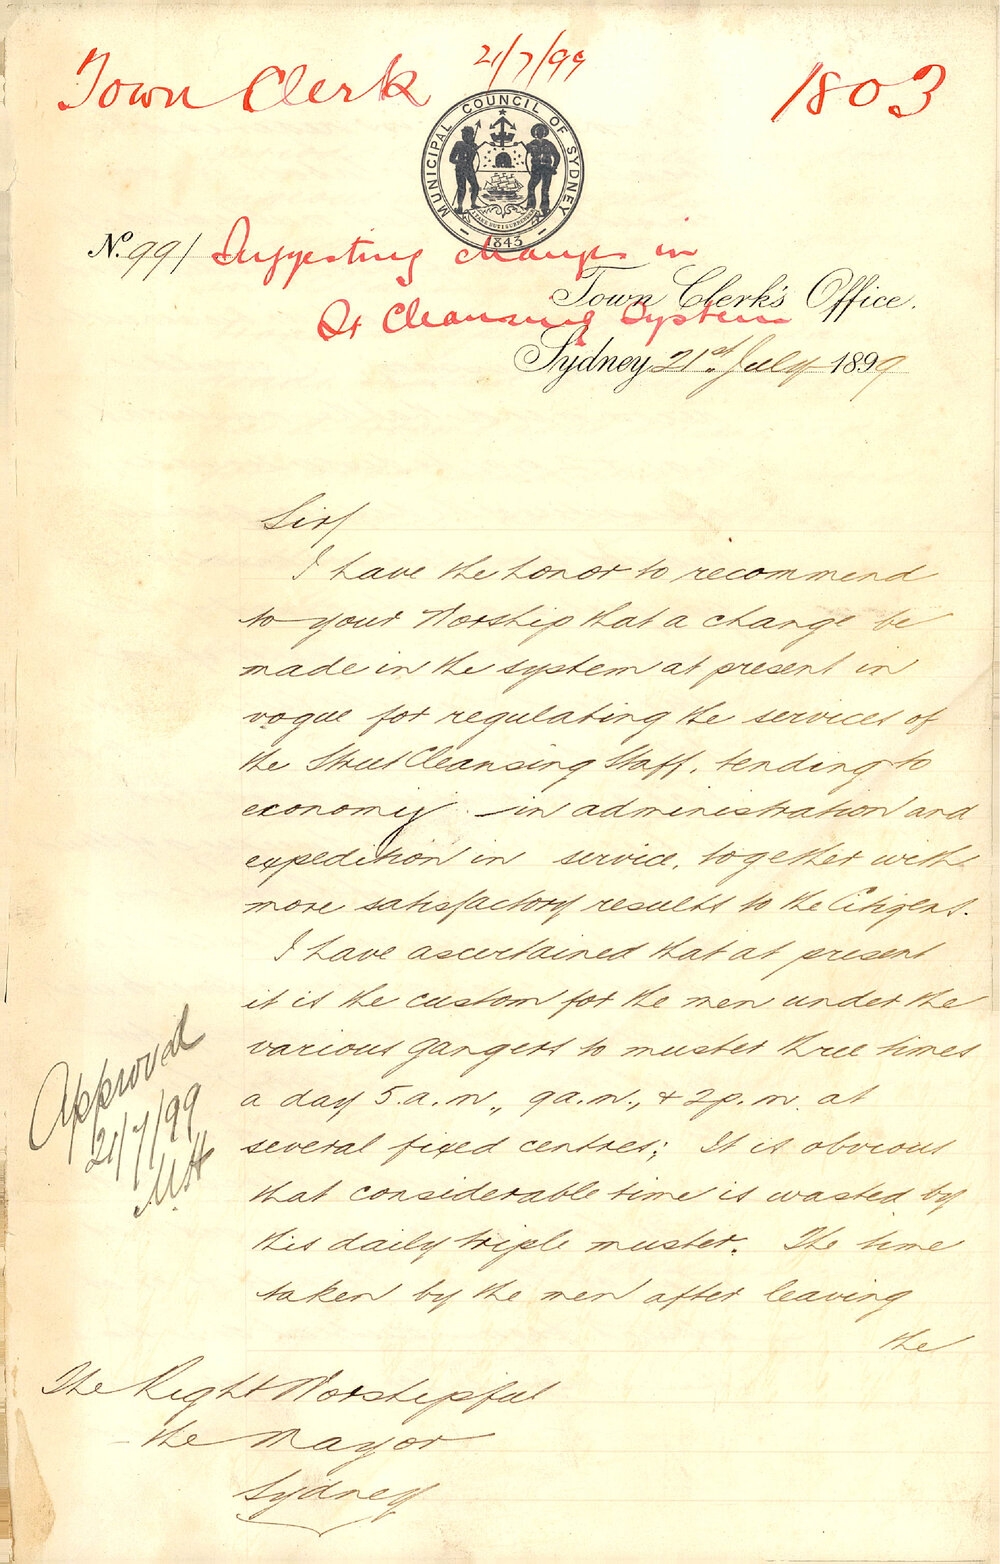 Town Clerk
21/7/99
1803
MUNICIPAL COUNCIL OF SYDNEY
1843
No. 991
Suggesting changes in
St Cleansing System
Town Clerk's Office.
Sydney 21st July 1899
Sir/
I have the honor to recommend
to your Worship that a change be
made in the system at present in
vogue for regulating the services of
the Street Cleansing Staff, tending to
economy in administration and
expedition in service, together with
more satisfactory results to the Citizens.
I have ascertained that at present
it is the custom for the men under the
various gangers to muster three times
a day 5.a.m., 9a.m., & 2p.m. at
several fixed centres; It is obvious
that considerable time is wasted by
this daily triple muster. The time
taken by the men after leaving
the
Approved
21/7/99
MH
The Right Worshipful
the Mayor
Sydney